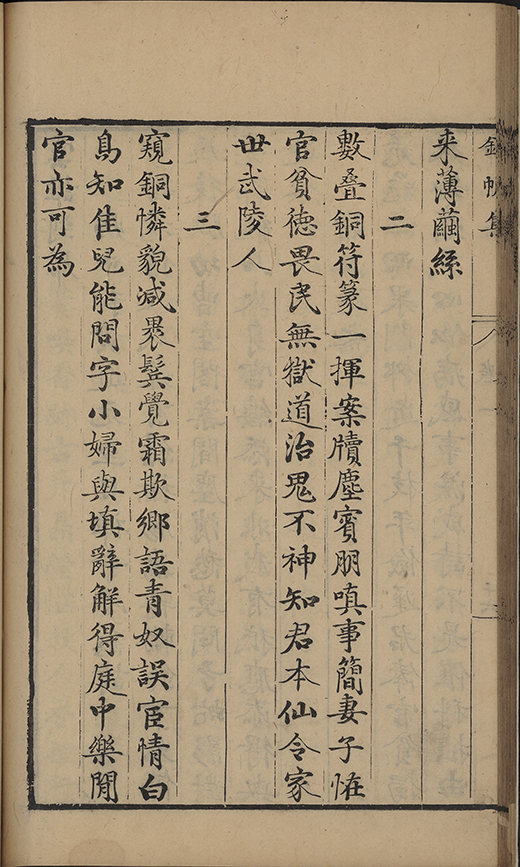 来薄繭絲
二
數疊銅符篆一揮案牘塵賓朋嗔事簡妻子恠
官貧徳畏民無獄道治鬼不神知君本仙令家
世武陵人
三
窺銅憐貌減褁鬂覺霜欺鄉語青奴誤宦情白
鳥知佳兒能問字小婦與填辭解得庭中樂閒
官亦可為